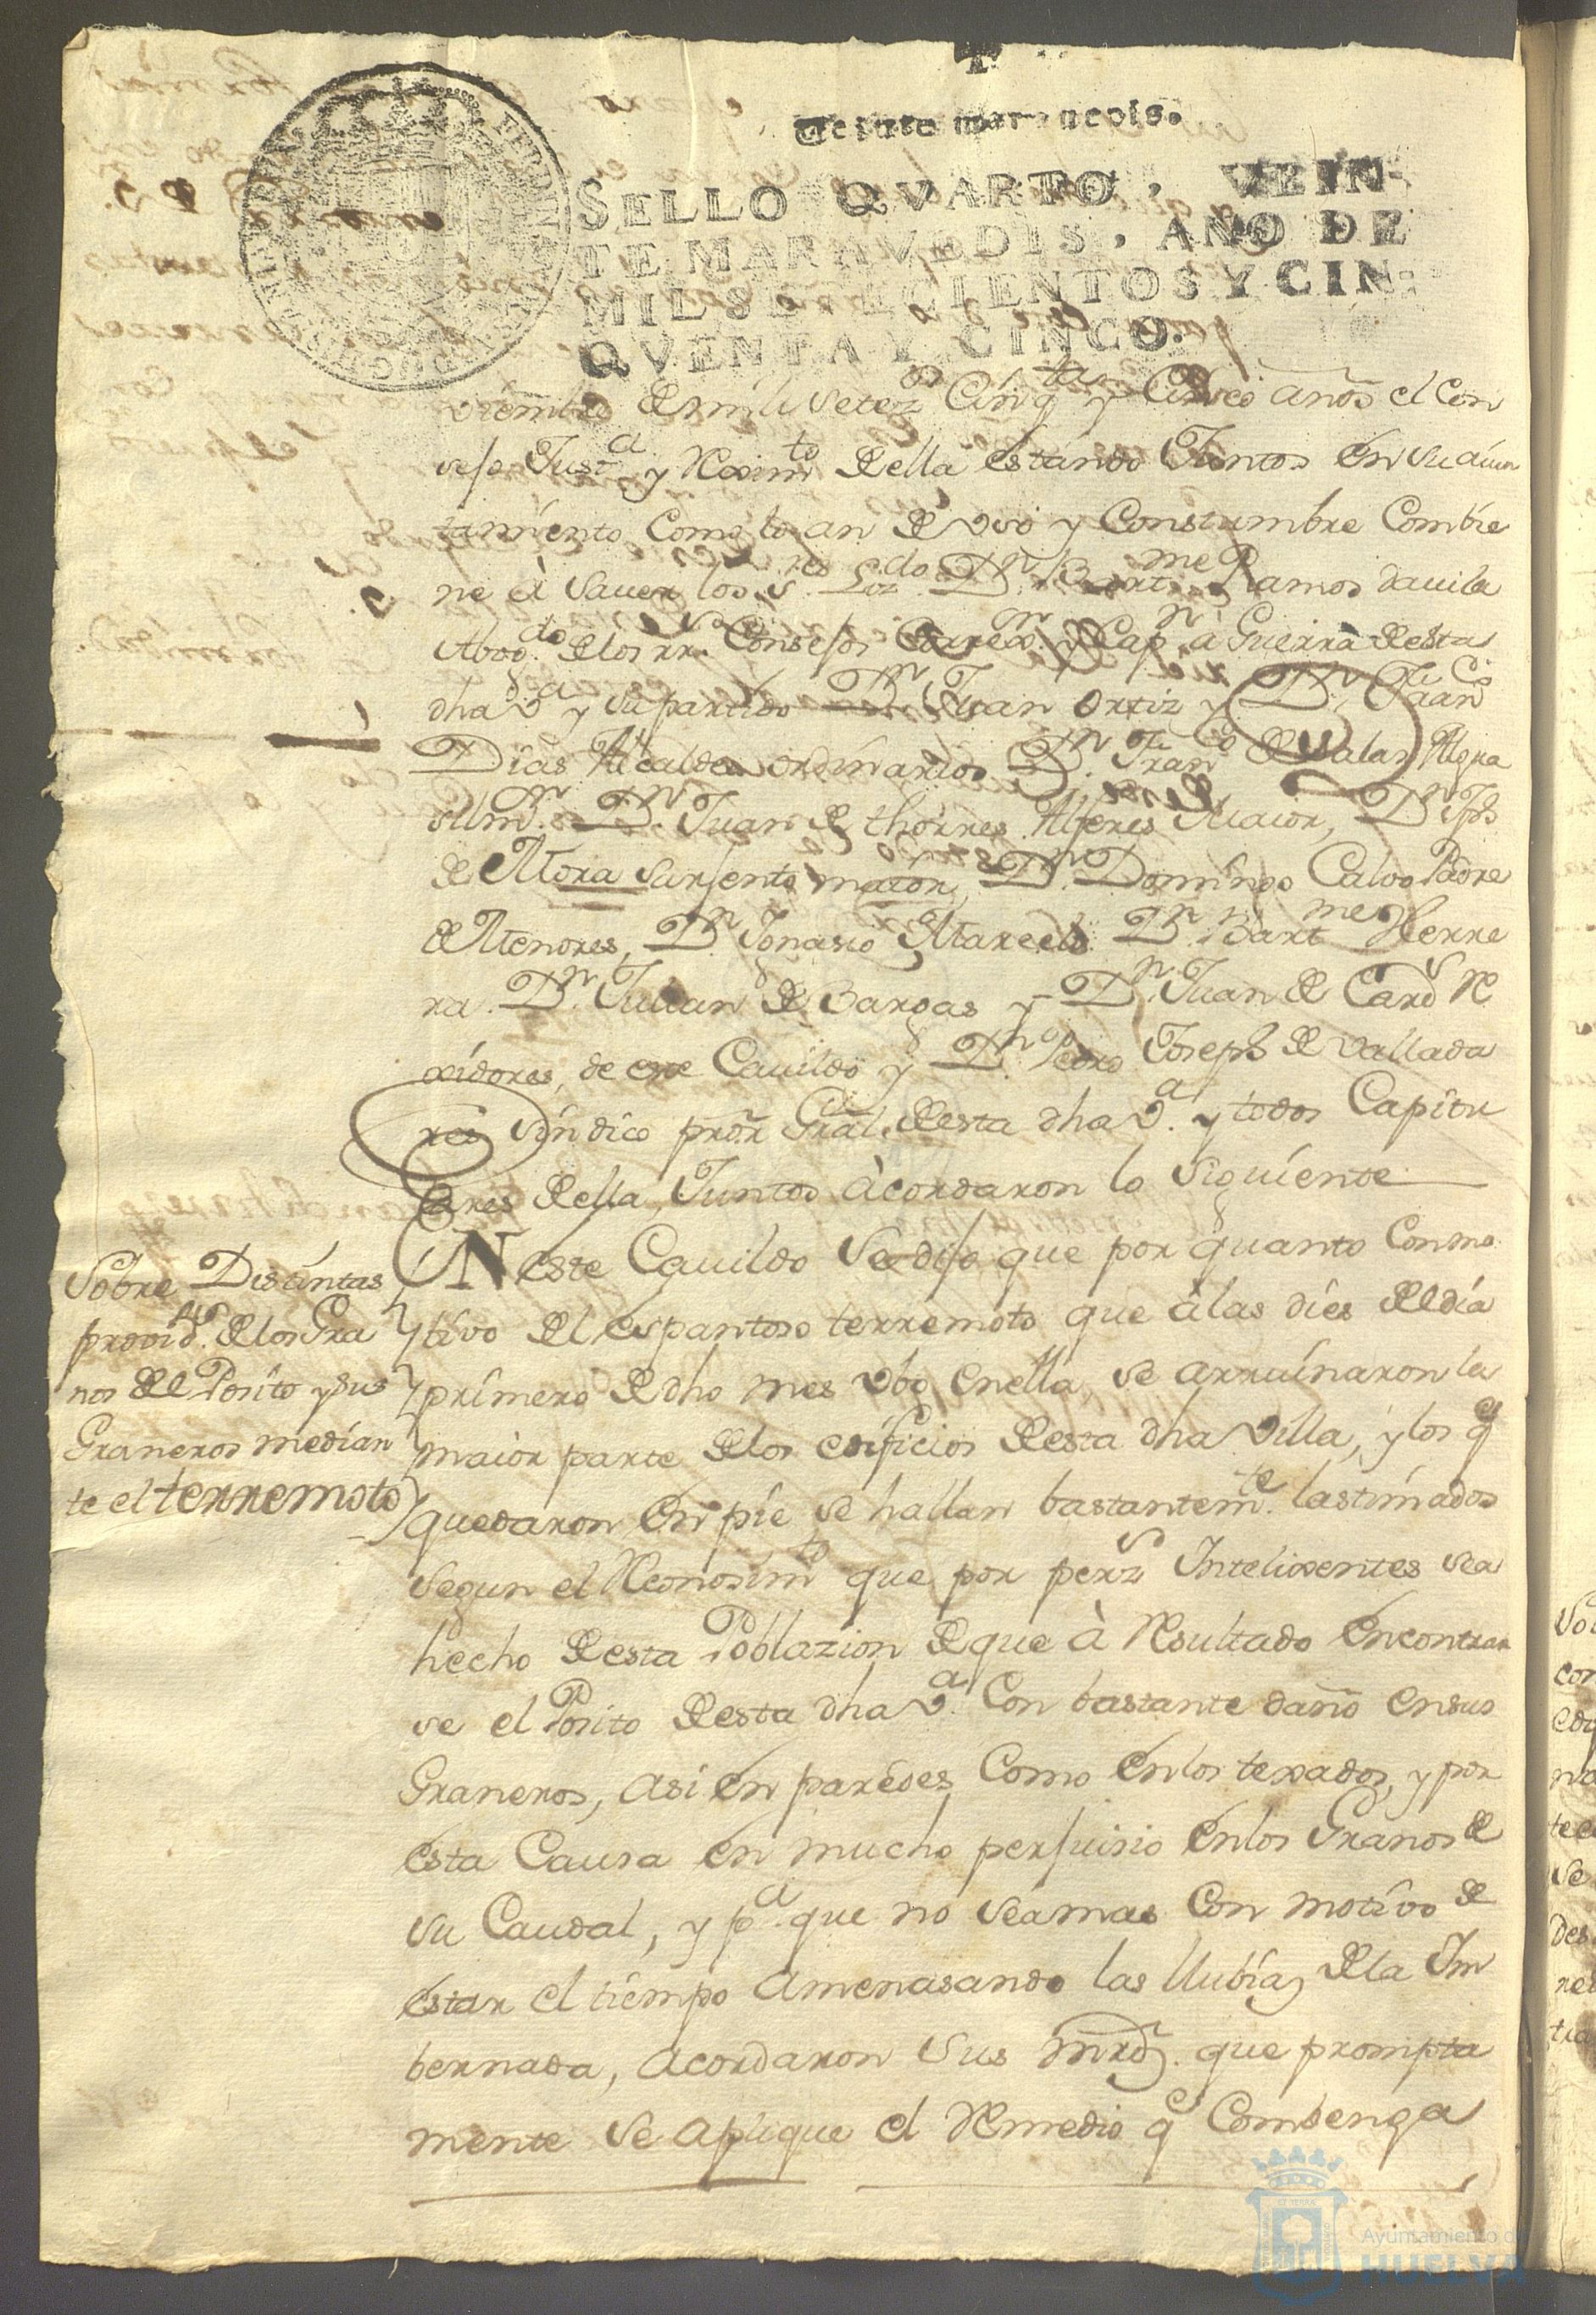 veinte maravedis.
SELLO QVARTO, VEIN-
TE MARAVEDIS, AÑO DE
MIL SETECIENTOS Y CIN-
QVENTA Y CINCO.
viembre de mill setezos Cinqta y Cinco años el Con
sejo Justa y Reximto della estando Juntos en su aiun
tamiento Como lo an de uso y Constumbre Combie
ne à Saver los Sres Lizdo Dn Bartme Ramos davila
Abogdo de los rrs Consejos Correxr y Capn à Guerra desta
dha va y su partido Dn Juan Ortiz y Dn Franco
Dias Alcaldes ordinarios Dn Franco de Salas Algua
sil mr Dn Juan de thorres Alferes Maior, Dn Jph
de Mora Sarjento maior, Dn Domingo Calvo Padre
de Menores, Dn Ignasio Marcelo Dn Bartme Herre
ra. Dn Julian de Bargas y Dn Juan de Cards Re
xidores, de este Cavildo y Dn Pedro Joseph de Vallada
res Sindico pror Gral desta dha va y todos Capitu
lares della Juntos àcordaron lo siguiente
EN este Cavildo Se dijo que por quanto Con mo
tivo del espantoso terremoto que à las dies del dia
primero de dho mes ubo en ella, se arruinaron la
maior parte de los edificios desta dha Villa, y los q
quedaron en pie se hallan bastantemte lastimados
Segun el Reconosimto que por perzs Intelixentes sea
hecho desta Poblazion de que à Resultado encontrar
se el Posito desta dha va Con bastante daño en sus
Graneros, asi en paredes Como en los texados, y por
esta Causa en mucho perjuisio en los Granos de
su Caudal, y pa que no sea mas Con motivo de
estar el tiempo amenasando las llubias de la Im
bernada, acordaron Sus mrds. que prompta
mente Se aplique el Remedio q Combenga
Sobre Distintas
provids de los Gra
nos del Posito y sus
Graneros median
te el terremoto
Ayuntamiento de
HUELVA